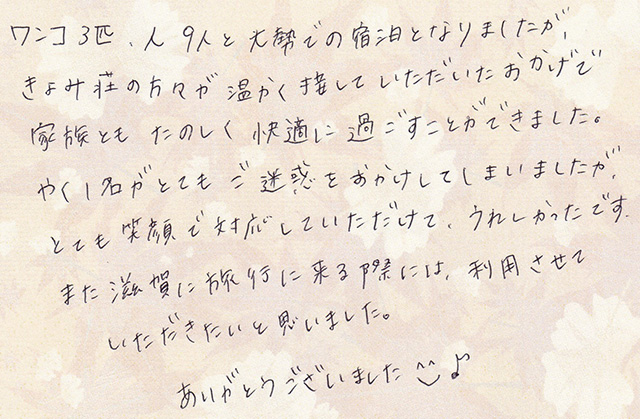 ワンコ3匹、人9人と大勢での宿泊となりましたが、
きよみ荘の方々が温かく接していただいたおかげで
家族とも たのしく 快適に過ごすことができました。
やく1名がとてもご迷惑をおかけしてしまいましたが、
とても笑顔で対応していただけて、うれしかったです。
また滋賀に旅行に来る際には、利用させて
いただきたいと思いました。
ありがとうございました ^^ ♪